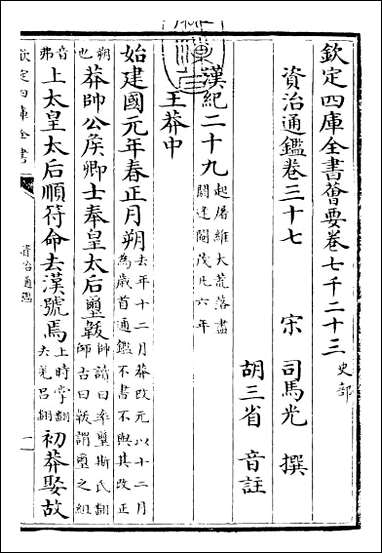 欽定四庫全書薈要卷七千二十三 史部
資治通鑑卷三十七 宋 司馬光 撰
胡三省 音註
漢紀二十九 起屠維大荒落盡閼逢閹茂凡六年
王莽中
始建國元年春正月朔 去年十二月莽改元以十二月為歲首通鑑不書不與其改正
朔也 莽帥公侯卿士奉皇太后璽韍 帥讀曰率璽斯氏翻師古曰韍謂璽之組
音弗 上太皇太后順符命去漢號焉 上時掌翻去羌呂翻 初莽娶故
欽定四庫全書 資治通鑑 一